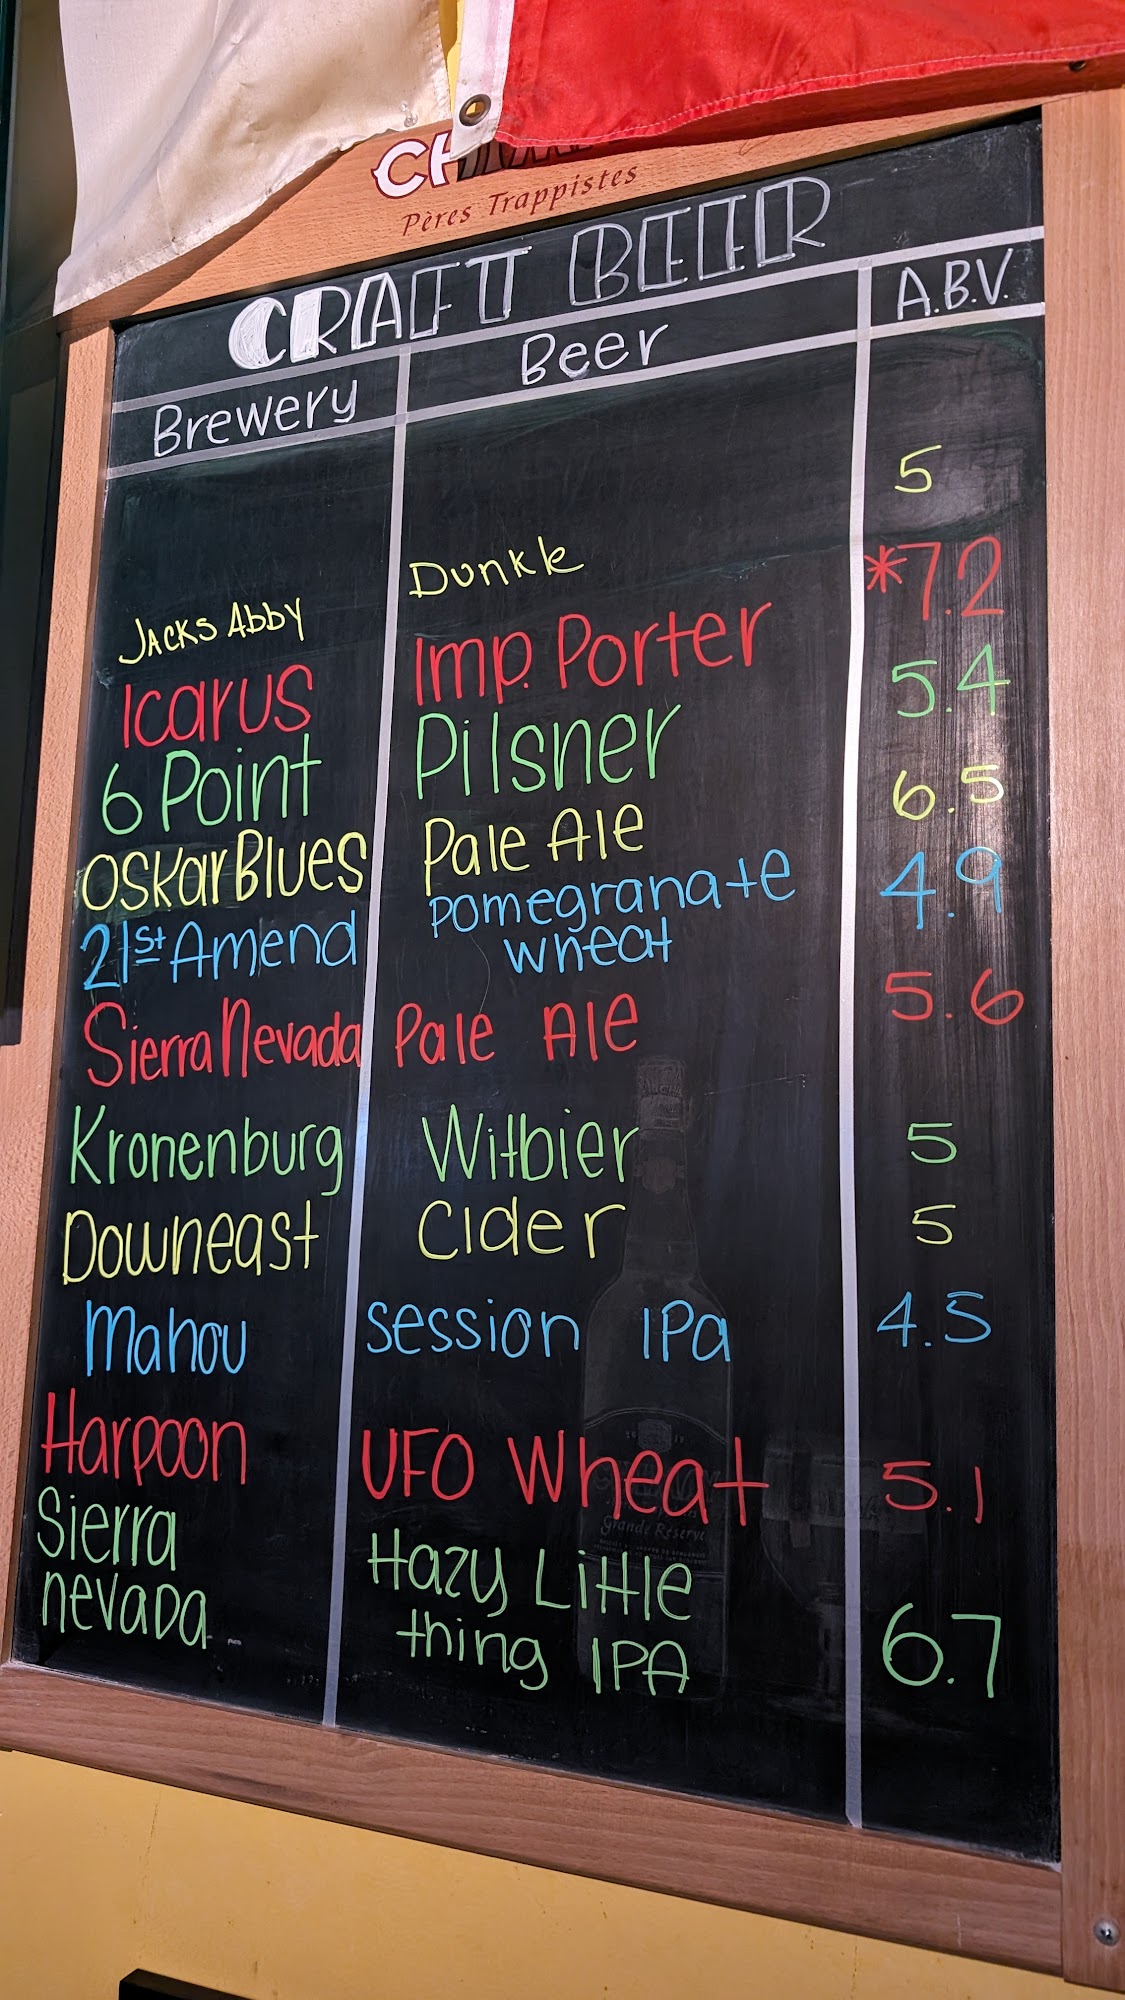 Pères Trappistes
CRAFT BEER
Brewery Beer A.B.V.
Jacks Abby Dunkle 5
Icarus Imp. Porter *7.2
6 Point Pilsner 5.4
Oskar Blues Pale Ale 6.5
21st Amend Pomegranate 4.9
wheat
Sierra Nevada Pale Ale 5.6
Kronenburg Witbier 5
Downeast Cider 5
Mahou Session IPA 4.5
Harpoon UFO Wheat 5.1
Sierra Hazy Little
nevada thing IPA 6.7
Grande Réserve